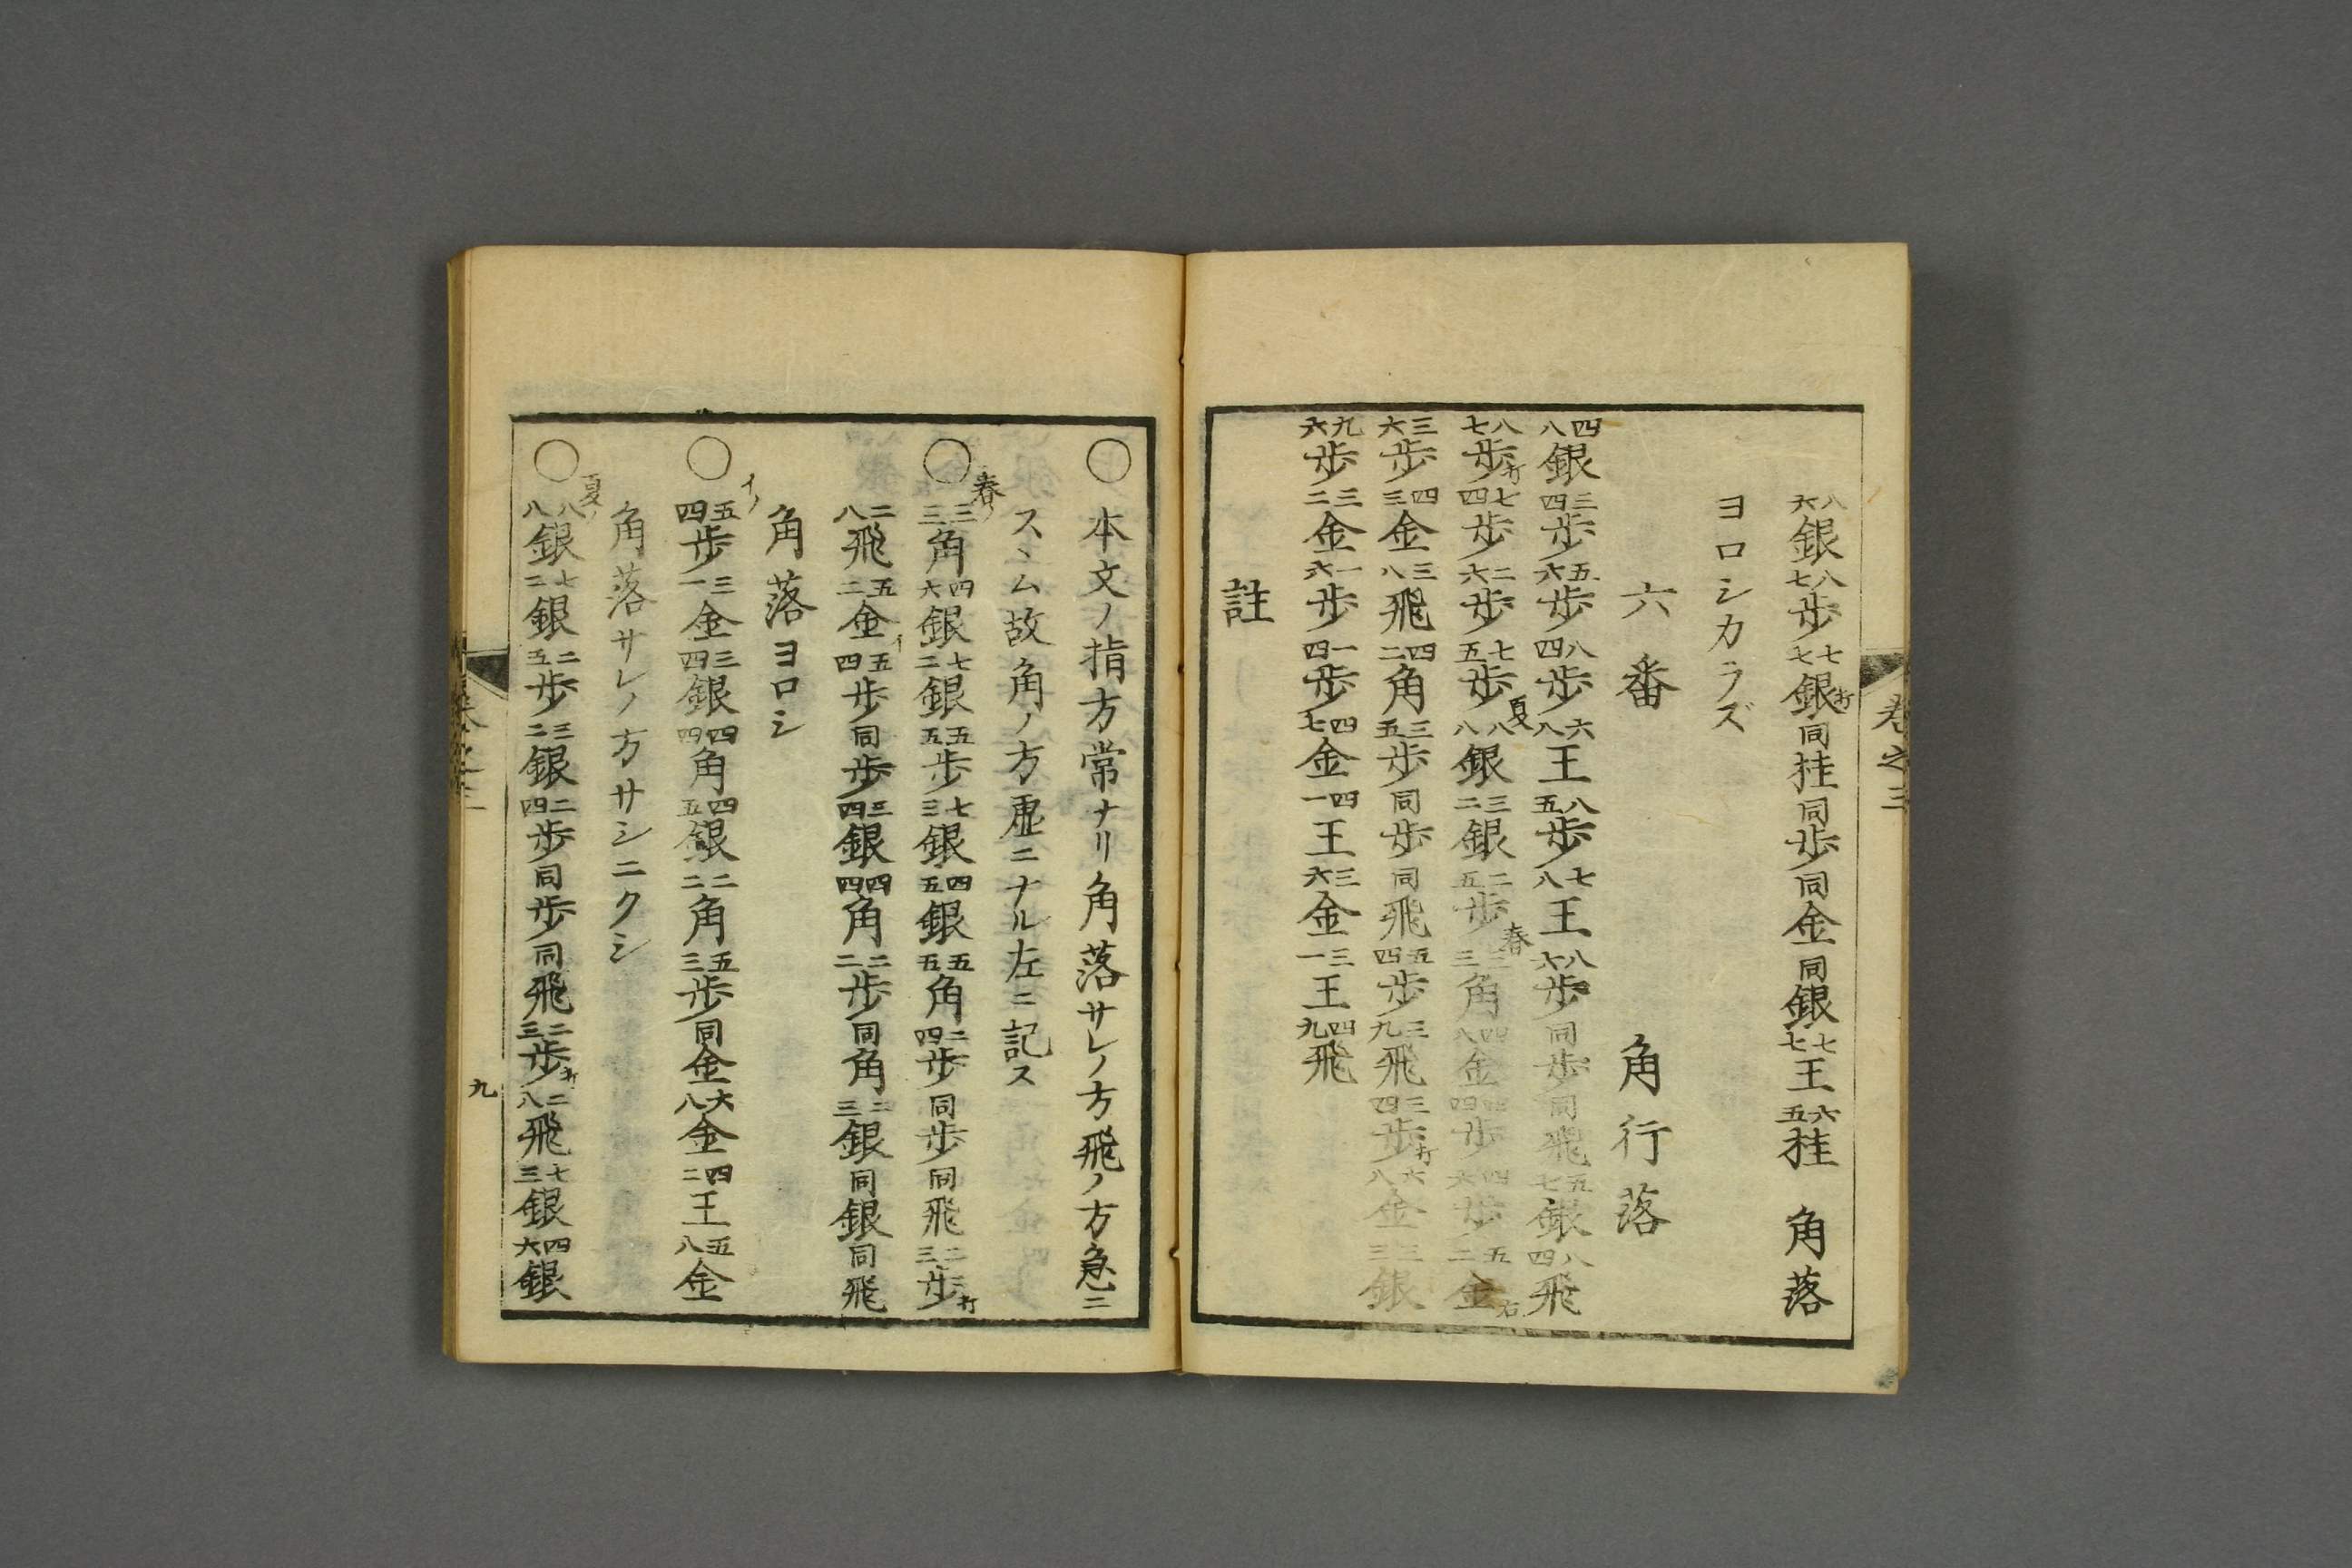 八六銀八七歩七七銀打同桂同歩同金同銀七七王六五桂 角落
ヨロシカラズ
六番 角行落
四八銀三四歩五六歩八四歩六八王八五歩七八王八六歩同歩同飛五七銀八四飛
八七歩打七四歩二六歩七五歩夏八八銀三二銀二五歩春三三角四八金四四歩四六歩五二金右
三六歩四三金三八飛四二角三五歩同歩同飛五四歩三九飛三四歩打六八金三三銀
九六歩三二金一六歩一四歩四七金四一王三六金三一王四九飛
註
巻之三
○本文ノ指方常ナリ角落サレノ方飛ノ方急ニ
スヽム故角ノ方虚ニナル左ニ記ス
○春ノ三三角四六銀七二銀五五歩七三銀四五銀五五角二四歩同歩同飛二三歩打
二八飛五二金イ五四歩同歩三四銀四四角二二歩同角二三銀同銀同飛
角落ヨロシ
○イノ五四歩三一金三四銀四四角四五銀二二角五三歩同金六八金四二王五八金
角落サレノ方サシニクシ
○夏ノ八八銀七二銀二五歩三二銀二四歩同歩同飛二三歩打二八飛七三銀四六銀
九